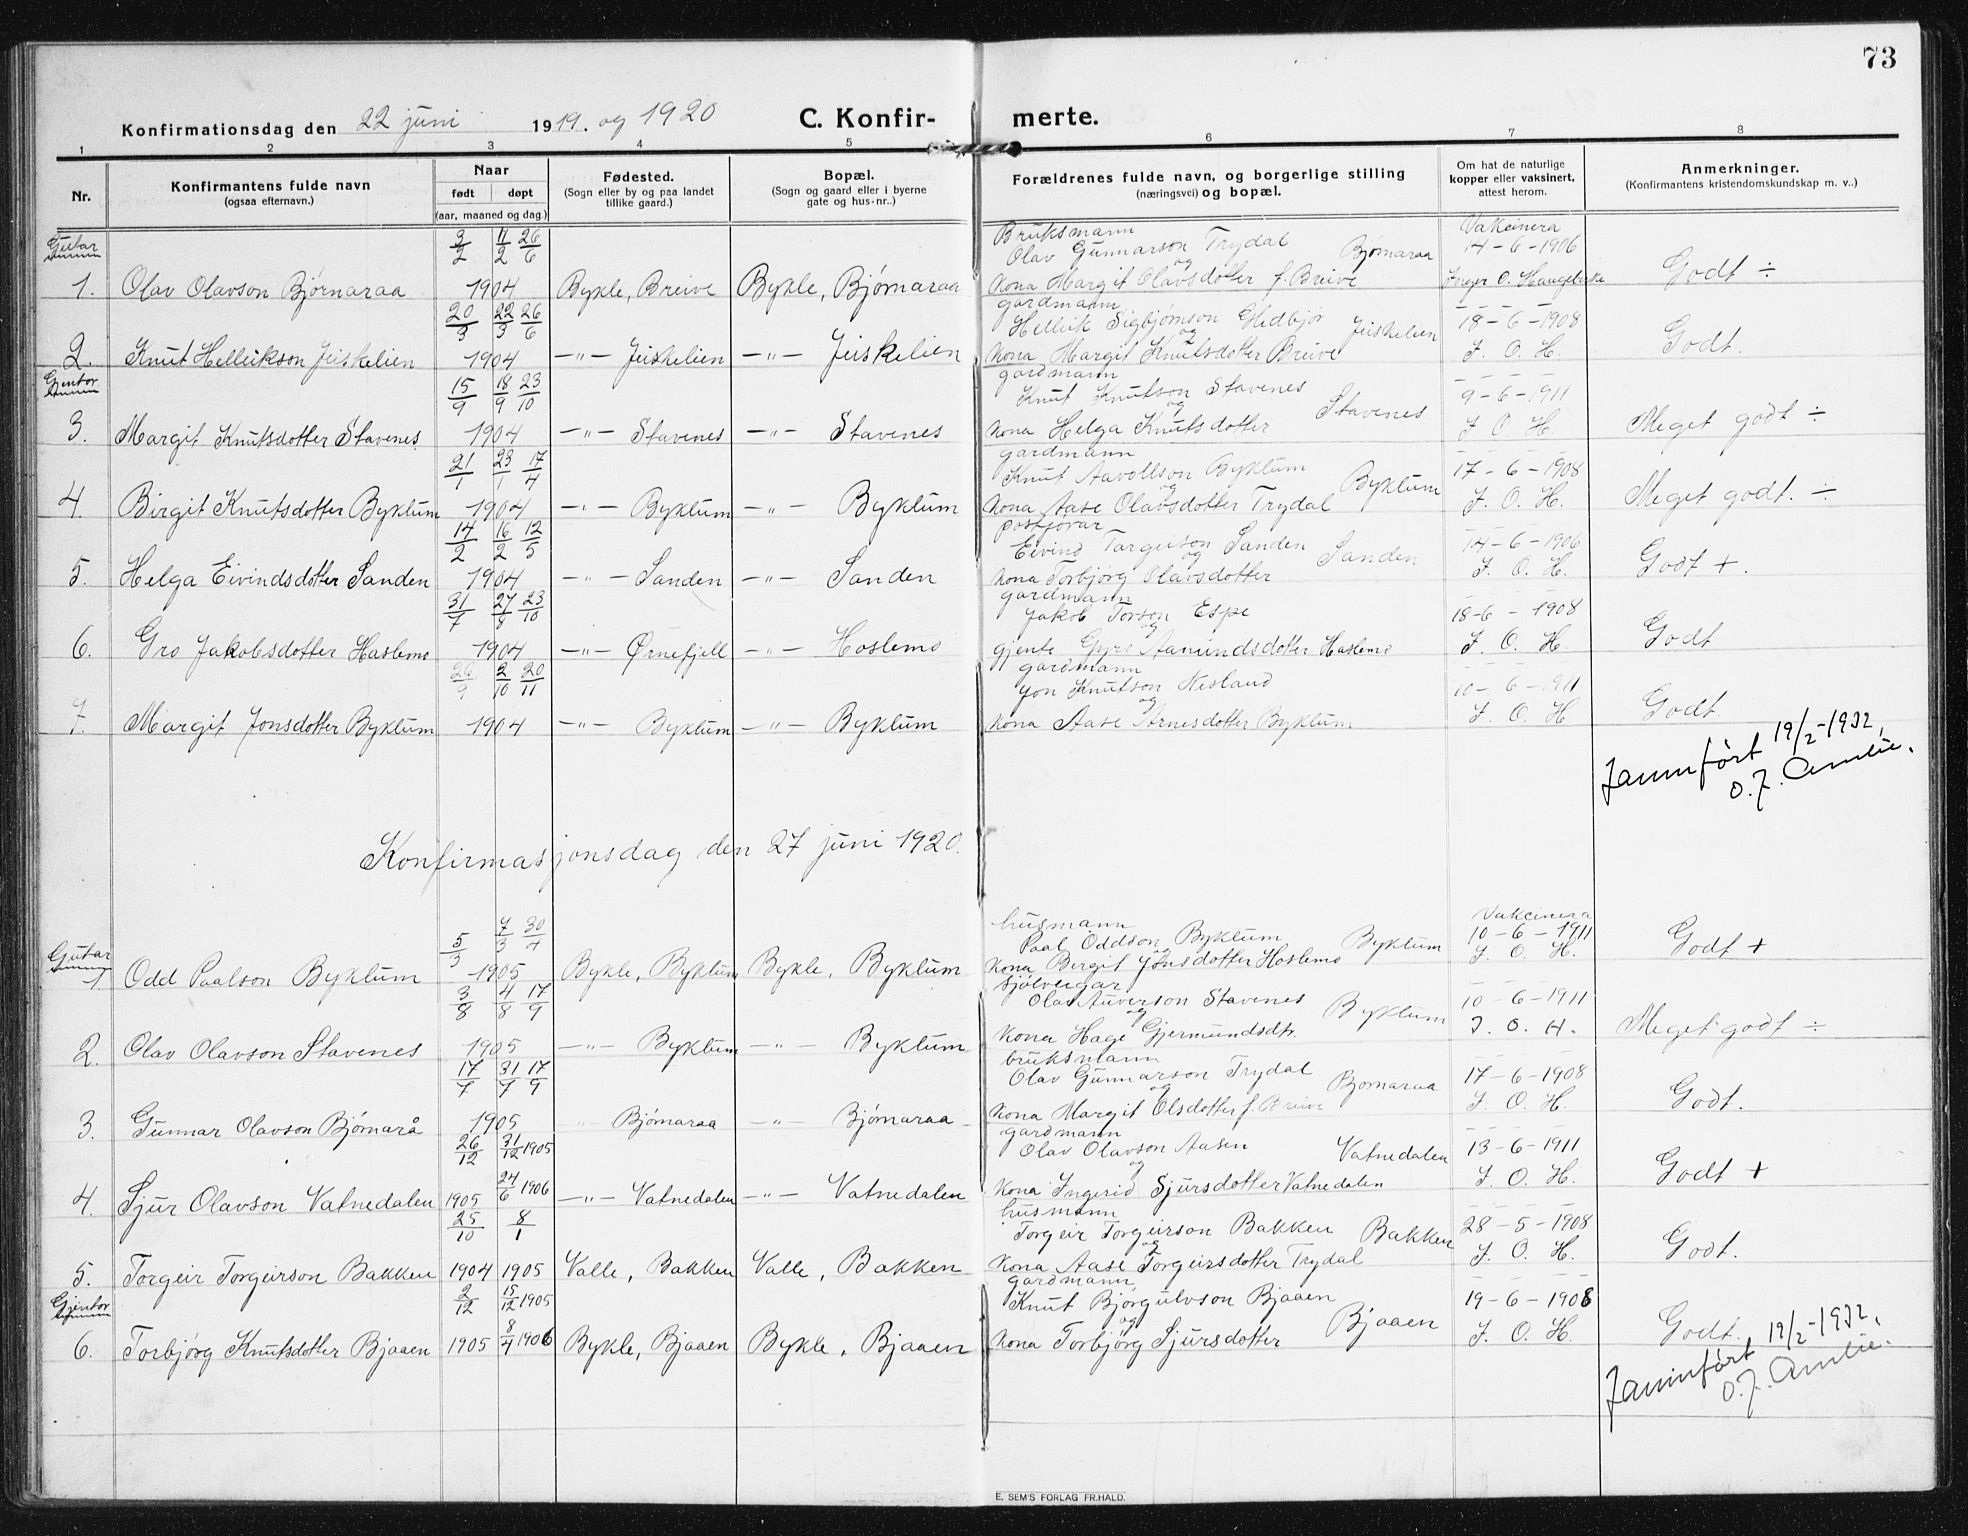 73
Konfirmationsdag den 22 juni 1919. og 1920 C. Konfir- merte.
1 2 3 4 5 6 7 8
Nr.
Konfirmantens fulde navn
(ogsaa efternavn.)
Naar
født døpt
(aar, maaned og dag.)
Fødested.
(Sogn eller by og paa landet
tillike gaard.)
Bopæl.
(Sogn og gaard eller i byerne
gate og hus-nr..)
Forældrenes fulde navn, og borgerlige stilling
(næringsvei) og bopæl.
Om hat de naturlige
kopper eller vaksinert,
attest herom.
Anmerkninger.
(Konfirmantens kristendomskundskap m. v..)
Gutar
3/2 11/2 26/6
Bruksmann
Olav Gunnarson Trydal Bjørnaraa
og
Vakcinera
14-6-1906
1. Olav Olavson Bjørnaraa 1904 Bykle, Breive Bykle, Bjørnaraa Kona Margit Olavsdotter f. Breive Inger O. Haugebirke Godt ÷
20/3 22/3 26/6
gardmann
Hellik Sigbjørnson Glidbjor Jeiskelien 18-6-1908
og
2. Knut Helleikson Jeiskelien 1904 -"- Jeiskelien -"- Jeiskelien Kona Margit Knutsdotter Breive J. O. H. Godt.
Gjentor
15/9 18/9 23/10
gardmann
Knut Knutson Stavenes Stavenes 9-6-1911
og
3. Margit Knutsdotter Stavenes 1904 -"- Stavenes -"- Stavenes Kona Helga Knutsdotter J O H. Meget godt ÷
21/1 23/1 17/4
gardmann
Knut Aavollson Byklum Byklum 17-6-1908
og
4. Birgit Knutsdotter Byklum 1904 -"- Byklum -"- Byklum Kona Aase Olavsdotter Trydal J. O. H. Meget godt. ÷
14/2 16/2 12/5
postførar
Eivind Targeison Sanden Sanden 14-6-1906
og
5. Helga Eivindsdotter Sanden 1904 -"- Sanden -"- Sanden Kona Torbjørg Olavsdotter J. O. H. Godt +.
31/7 27/8 23/10
gardmann
Jakob Torson Espe 18-6-1908
og
6. Gro Jakobsdotter Haslemo 1904 -"- Ørnefjell -"- Hoslemo gjente Gyro Aamundsdotter Haslemo J. O. H. Godt
26/9 2/10 20/11
gardmann
Jon Knutson Nesland 10-6-1911
og
7. Margit Jonsdotter Byklum 1904 -"- Byklum -"- Byklum Kona Aase Arnesdotter Byklum J. O. H Godt
Jamnført 19/2-1932,
O. J. Amlie.
Konfirmasjonsdag den 27 juni 1920.
Gutar
5/3 7/3 30/4
husmann
Paal Oddson Byklum Byklum
Vakcinera
10-6-1911
1. Odd Paalson Byklum 1905 Bykle, Byklum Bykle, Byklum Kona Bergit Jonsdotter Hoslemo J. O. H. Godt +
3/8 4/8 17/9
sjølveigar
Olav Auverson Stavenes Byklum 10-6-1911
og
2. Olav Olavson Stavenes 1905 -"- Byklum -"- Byklum Kona Hage Gjermundsdtr. J. O. H. Meget godt ÷
17/7 31/7 17/9
bruksmann
Olav Gunnarson Trydal Bjornaraa 17-6-1908
og
3. Gunnar Olavson Bjørnarå 1905 " Bjørnaraa -"- Bjørnaraa Kona Margit Olsdotter f. Breive J. O. H. Godt.
26/12 31/12 1905
gardmann
Olav Olavson Aasen Vatnedalen 13-6-1911
og
24/6 1906
4. Sjur Olavson Vatnedalen 1905 -"- Vatnedalen -"- Vatnedalen Kona Ingerid Sjursdotter Vatnedalen J. O. H. Godt +
25/10 8/1
husmann
Torgeir Torgeirson Bakken Bakken 28-5-1908
og
5. Torgeir Torgeirson Bakken 1904 1905 Valle, Bakken Valle, Bakken Kona Aase Torgeirsdotter Trydal J. O. H. Godt.
Gjentor
2/12 15/12 1905
gardmann
Knut Bjørgulvson Bjaaen Bjaaen 19-6-1908
og
8/4 1906
6. Torbjørg Knutsdotter Bjaaen 1905 Bykle, Bjaaen Bykle, Bjaaen Kona Torbjørg Sjursdotter J. O. H. Godt.
Jamnført 19/2-1932.
O. J. Amlie.
E. SEM'S FORLAG FR.HALD.